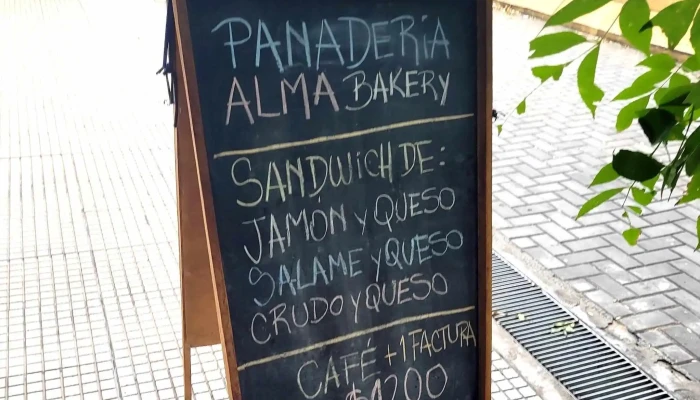 PANADERÍA
ALMA BAKERY
SANDWICH DE:
JAMÓN y QUESO
SALAME y QUESO
CRUDO y QUESO
CAFÉ + 1 FACTURA
$1200